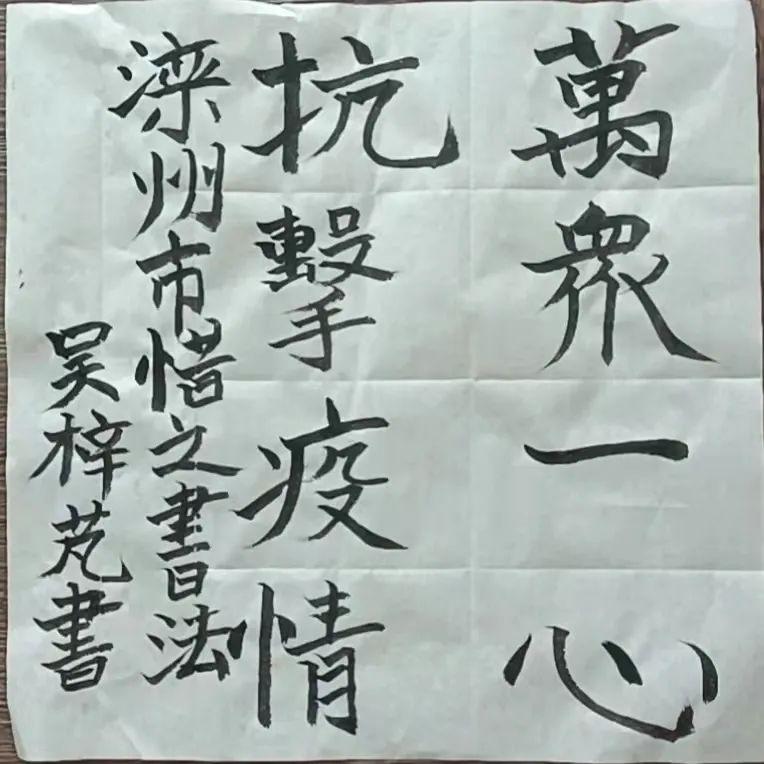 萬衆一心
抗擊疫情
滦州市惜之書法
吴梓芃書